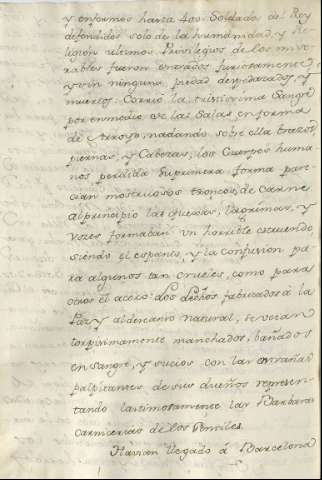 y enfermos hasta 400. Soldados del Rey
defendidos solo de la humanidad, y Re-
ligion ultimos Privilegios de los mise-
rables fueron entrados furiosamente
y sin ninguna piedad despedazados, y
muertos. Corrió la tristissima Sangre
por enmedio de las Salas en forma
de Arroyo, nadando sobre ella brazos
piernas, y Cabezas; los Cuerpos huma-
nos perdida su primera forma pare-
cian monstruosos troncos de Carne
al principio las quexas, lagrimas, y
vozes formaban un horrible estruendo,
siendo el espanto, y la confusion pa-
ra algunos tan crueles, como para
otros el acero: Los Lechos fabricados à la
Paz y al descanso natural, se veian
torpissimamente manchados, bañados
en sangre, y sucios con las entrañas
palpitantes de sus dueños represen-
tando lastimosamente las Barbaras
carnicerias de los
Havian llegado á Barcelona